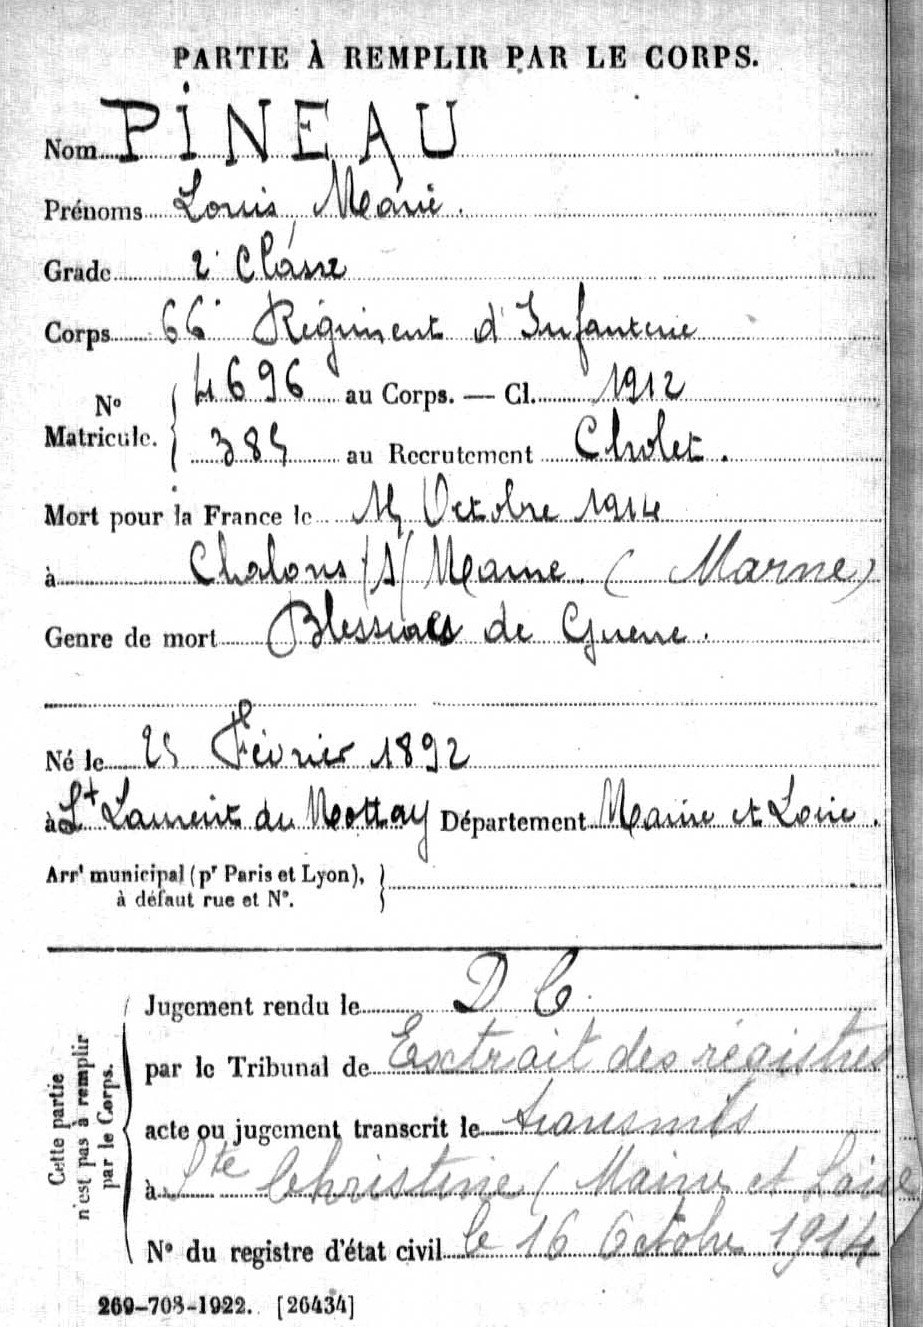 PARTIE À REMPLIR PAR LE CORPS.
Nom PINEAU
Prénoms Louis Marie.
Grade 2e Classe
Corps 66e Régiment d'Infanterie
N° Matricule. 4696 au Corps. — Cl. 1912
385 au Recrutement Cholet.
Mort pour la France le 15 Octobre 1914
à Chalons /s/ Marne. (Marne)
Genre de mort Blessures de Guerre.
Né le 25 Février 1892
à St Laurent du Mottay Département Maine et Loire.
Arrt municipal (pr Paris et Lyon),
à défaut rue et N°.
Cette partie n'est pas à remplir par le Corps.
Jugement rendu le D C
par le Tribunal de Extrait des registres
acte ou jugement transcrit le transmis
à Ste Christine (Maine et Loire
N° du registre d'état civil le 16 Octobre 1914
269-708-1922. [26434]